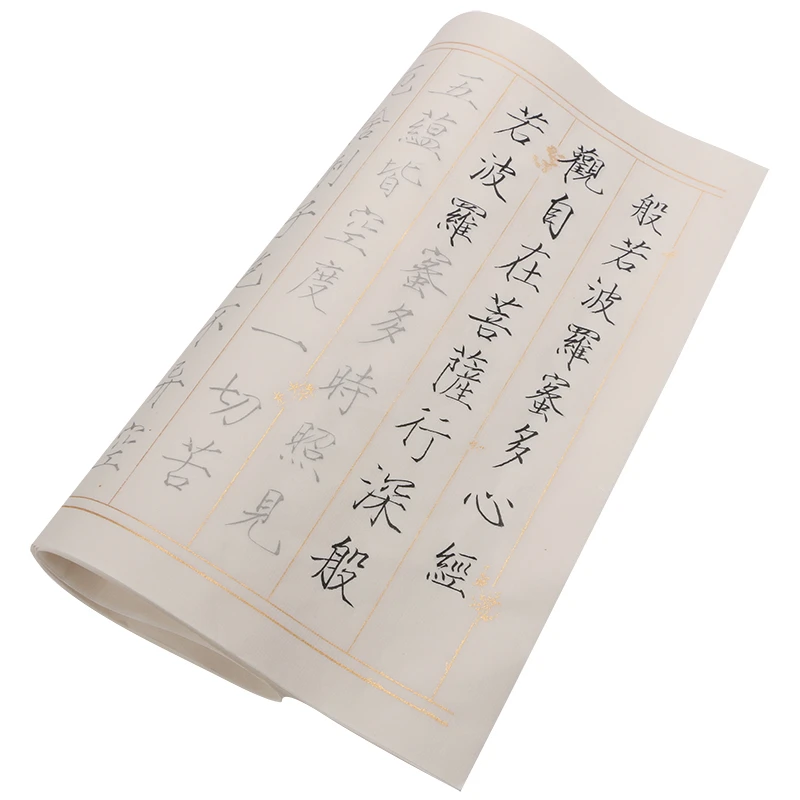 般若波羅蜜多心經
觀自在菩薩行深般
若波羅蜜多時照見
五蘊皆空度一切苦
厄舍利子色不異空